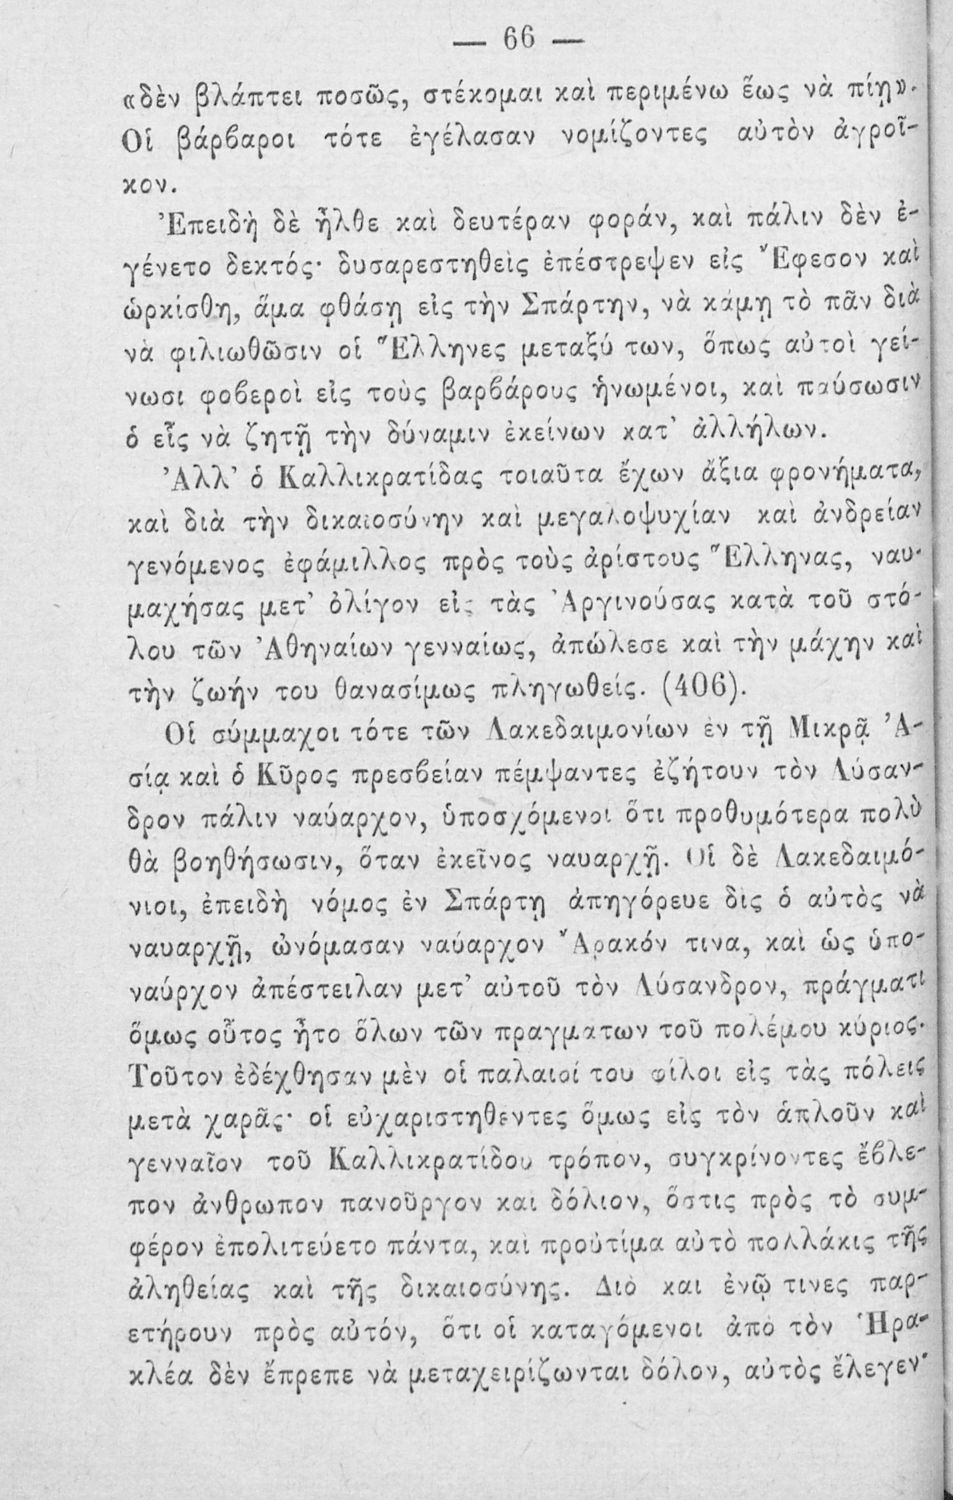 — 66 —
«δὲν βλάπτει ποσῶς, στέκομαι καὶ περιμένω ἕως νὰ πίῃ».
Οἱ βάρβαροι τότε ἐγέλασαν νομίζοντες αὐτὸν ἀγροῖ-
κον.
Ἐπειδὴ δὲ ἦλθε καὶ δευτέραν φοράν, καὶ πάλιν δὲν ἐ-
γένετο δεκτός· δυσαρεστηθεὶς ἐπέστρεψεν εἰς Ἔφεσον καὶ
ὡρκίσθη, ἅμα φθάσῃ εἰς τὴν Σπάρτην, νὰ κάμῃ τὸ πᾶν διὰ
νὰ φιλιωθῶσιν οἱ Ἕλληνες μεταξύ των, ὅπως αὐτοὶ γεί-
νωσι φοβεροὶ εἰς τοὺς βαρβάρους ἡνωμένοι, καὶ παύσωσιν
ὁ εἷς νὰ ζητῇ τὴν δύναμιν ἐκείνων κατ' ἀλλήλων.
Ἀλλ' ὁ Καλλικρατίδας τοιαῦτα ἔχων ἄξια φρονήματα,
καὶ διὰ τὴν δικαιοσύνην καὶ μεγαλοψυχίαν καὶ ἀνδρείαν
γενόμενος ἐφάμιλλος πρὸς τοὺς ἀρίστους Ἕλληνας, ναυ-
μαχήσας μετ' ὀλίγον εἰς τὰς Ἀργινούσας κατὰ τοῦ στό-
λου τῶν Ἀθηναίων γενναίως, ἀπώλεσε καὶ τὴν μάχην καὶ
τὴν ζωήν του θανασίμως πληγωθείς. (406).
Οἱ σύμμαχοι τότε τῶν Λακεδαιμονίων ἐν τῇ Μικρᾷ Ἀ-
σίᾳ καὶ ὁ Κῦρος πρεσβείαν πέμψαντες ἐζήτουν τὸν Λύσαν-
δρον πάλιν ναύαρχον, ὑποσχόμενοι ὅτι προθυμότερα πολὺ
θὰ βοηθήσωσιν, ὅταν ἐκεῖνος ναυαρχῇ. Οἱ δὲ Λακεδαιμό-
νιοι, ἐπειδὴ νόμος ἐν Σπάρτῃ ἀπηγόρευε δὶς ὁ αὐτὸς νὰ
ναυαρχῇ, ὠνόμασαν ναύαρχον Ἄρακόν τινα, καὶ ὡς ὑπο-
ναύρχον ἀπέστειλαν μετ' αὐτοῦ τὸν Λύσανδρον, πράγματι
ὅμως οὗτος ἦτο ὅλων τῶν πραγματων τοῦ πολέμου κύριος·
Τοῦτον ἐδέχθησαν μὲν οἱ παλαιοί του φίλοι εἰς τὰς πόλεις
μετὰ χαρᾶς· οἱ εὐχαριστηθέντες ὅμως εἰς τὸν ἁπλοῦν καὶ
γενναῖον τοῦ Καλλικρατίδου τρόπον, συγκρίνοντες ἔβλε-
πον ἀνθρωπον πανοῦργον καὶ δόλιον, ὅστις πρὸς τὸ συμ-
φέρον ἐπολιτεύετο πάντα, καὶ προὐτίμα αὐτὸ πολλάκις τῆς
ἀληθείας καὶ τῆς δικαιοσύνης. Διὸ καὶ ἐνῷ τινες παρ-
ετήρουν πρὸς αὐτόν, ὅτι οἱ καταγόμενοι ἀπὸ τὸν Ἡρα-
κλέα δὲν ἔπρεπε νὰ μεταχειρίζωνται δόλον, αὐτὸς ἔλεγεν·